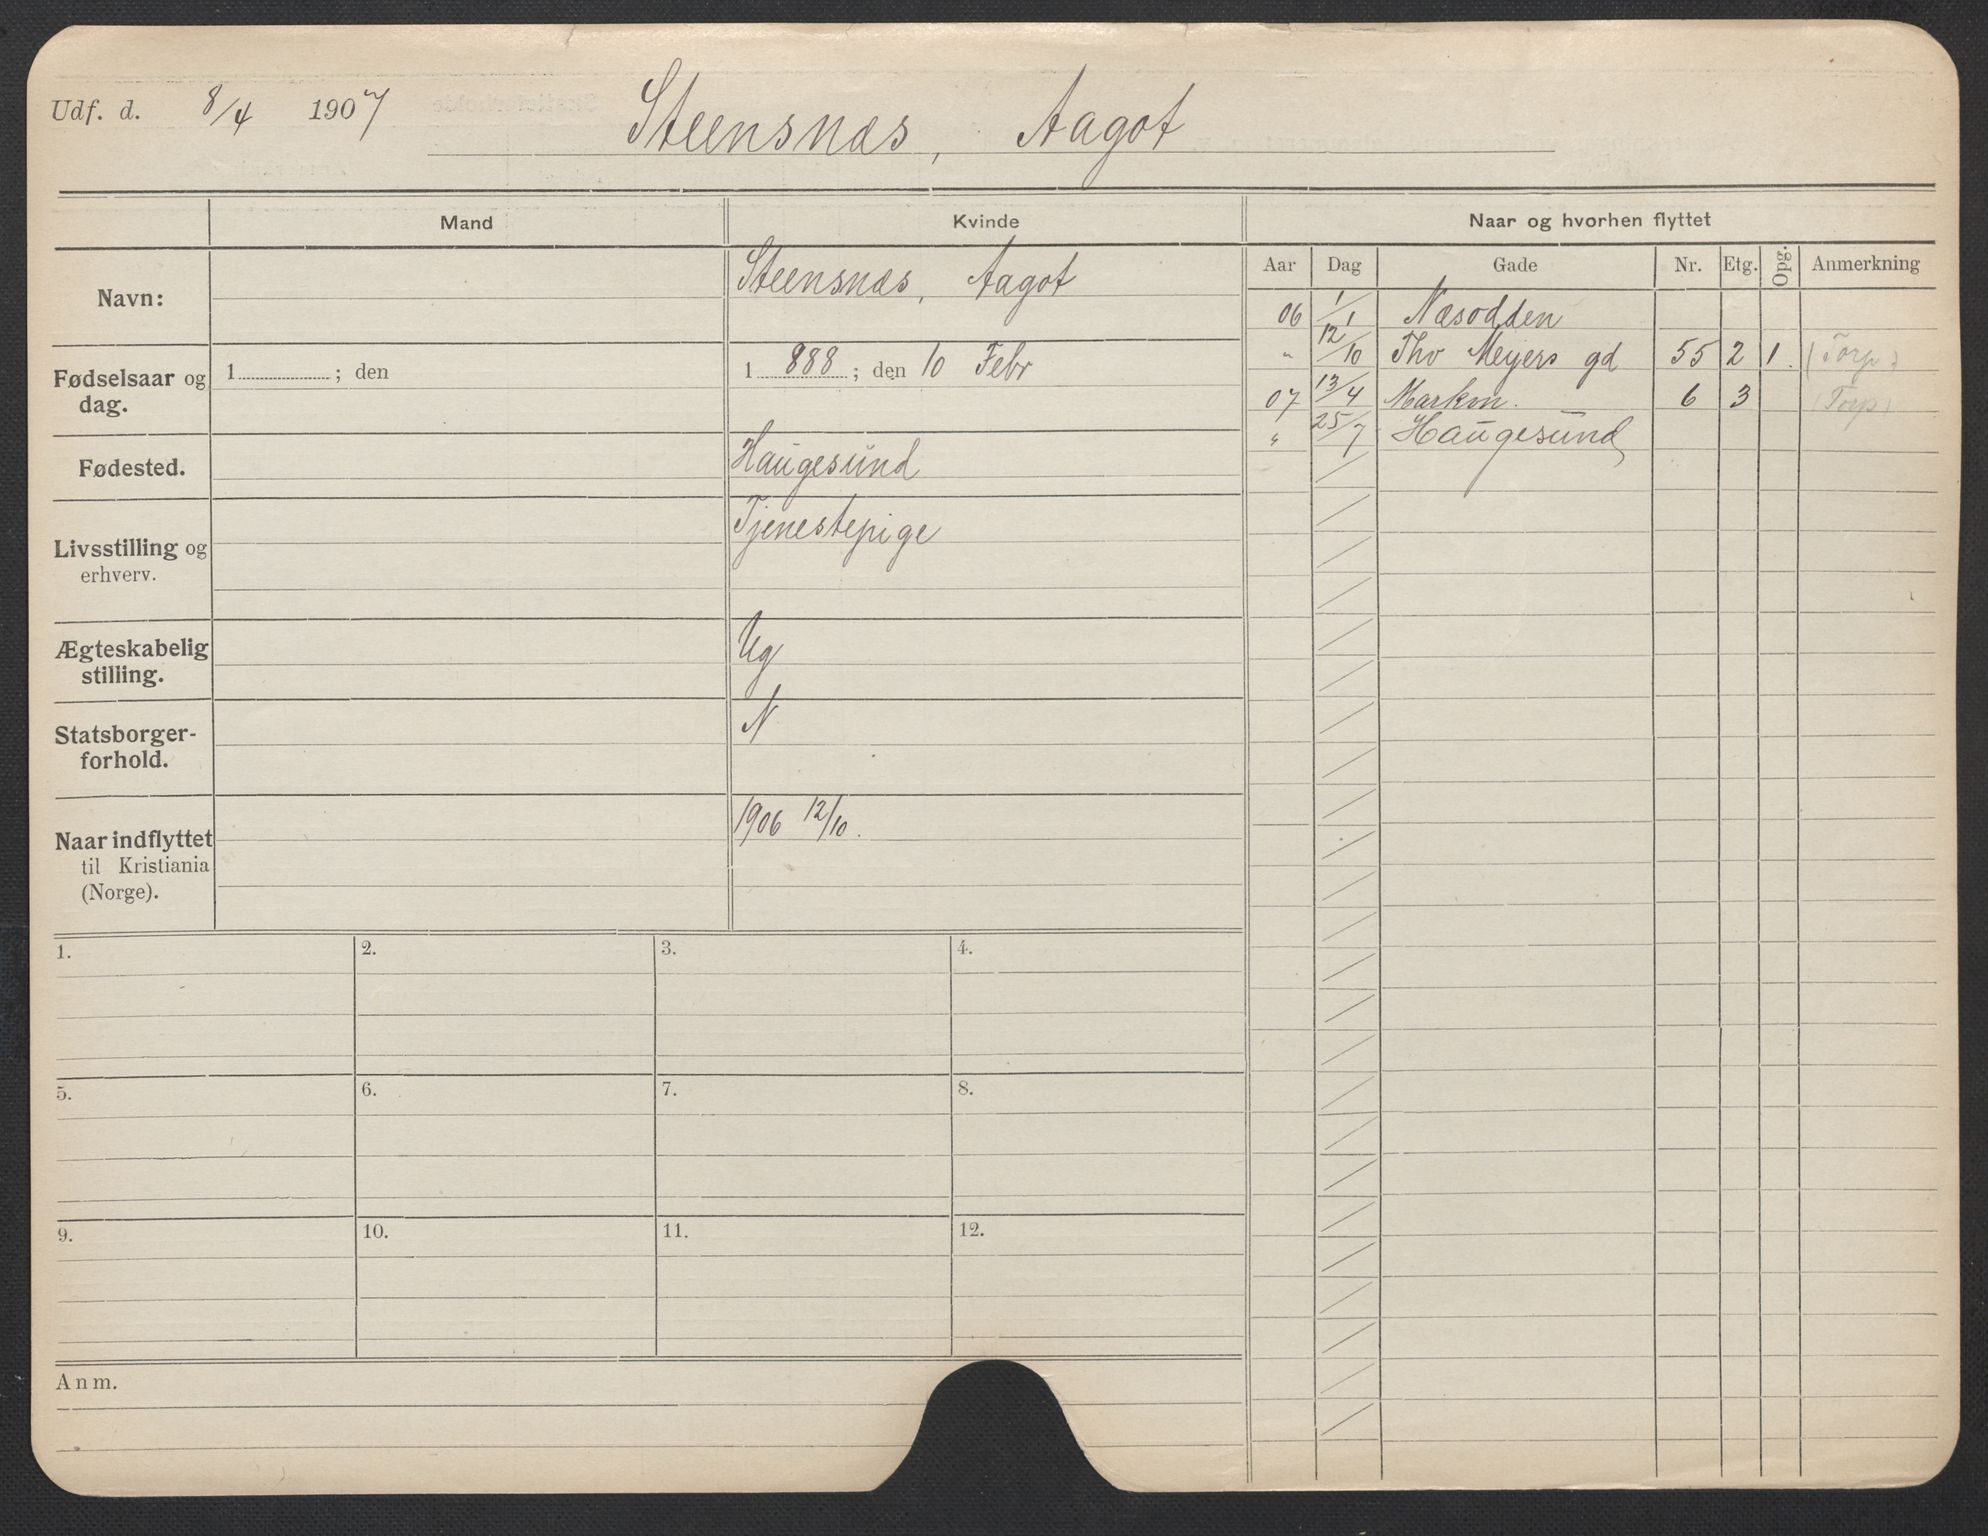 Udf. d. 8/4 1907 Steensnæs, Aagot
Mand Kvinde Naar og hvorhen flyttet
Aar Dag Gade Nr. Etg. Opg. Anmerkning
Navn: Steensnæs, Aagot
06 1/1 Næsodden
" 12/10 Thv Meyers gd 55 2 1. (Torp)
07 13/4 Markvn. 6 3 (Torp)
" 25/7 Haugesund
Fødselsaar og dag. 1 ; den 1 888 ; den 10 Febr
Fødested. Haugesund
Livsstilling og erhverv. Tjenestepige
Ægteskabelig stilling. Ug
Statsborger-
forhold. N
Naar indflyttet 1906 12/10.
til Kristiania
(Norge).
1. 2. 3. 4.
5. 6. 7. 8.
9. 10. 11. 12.
Anm.